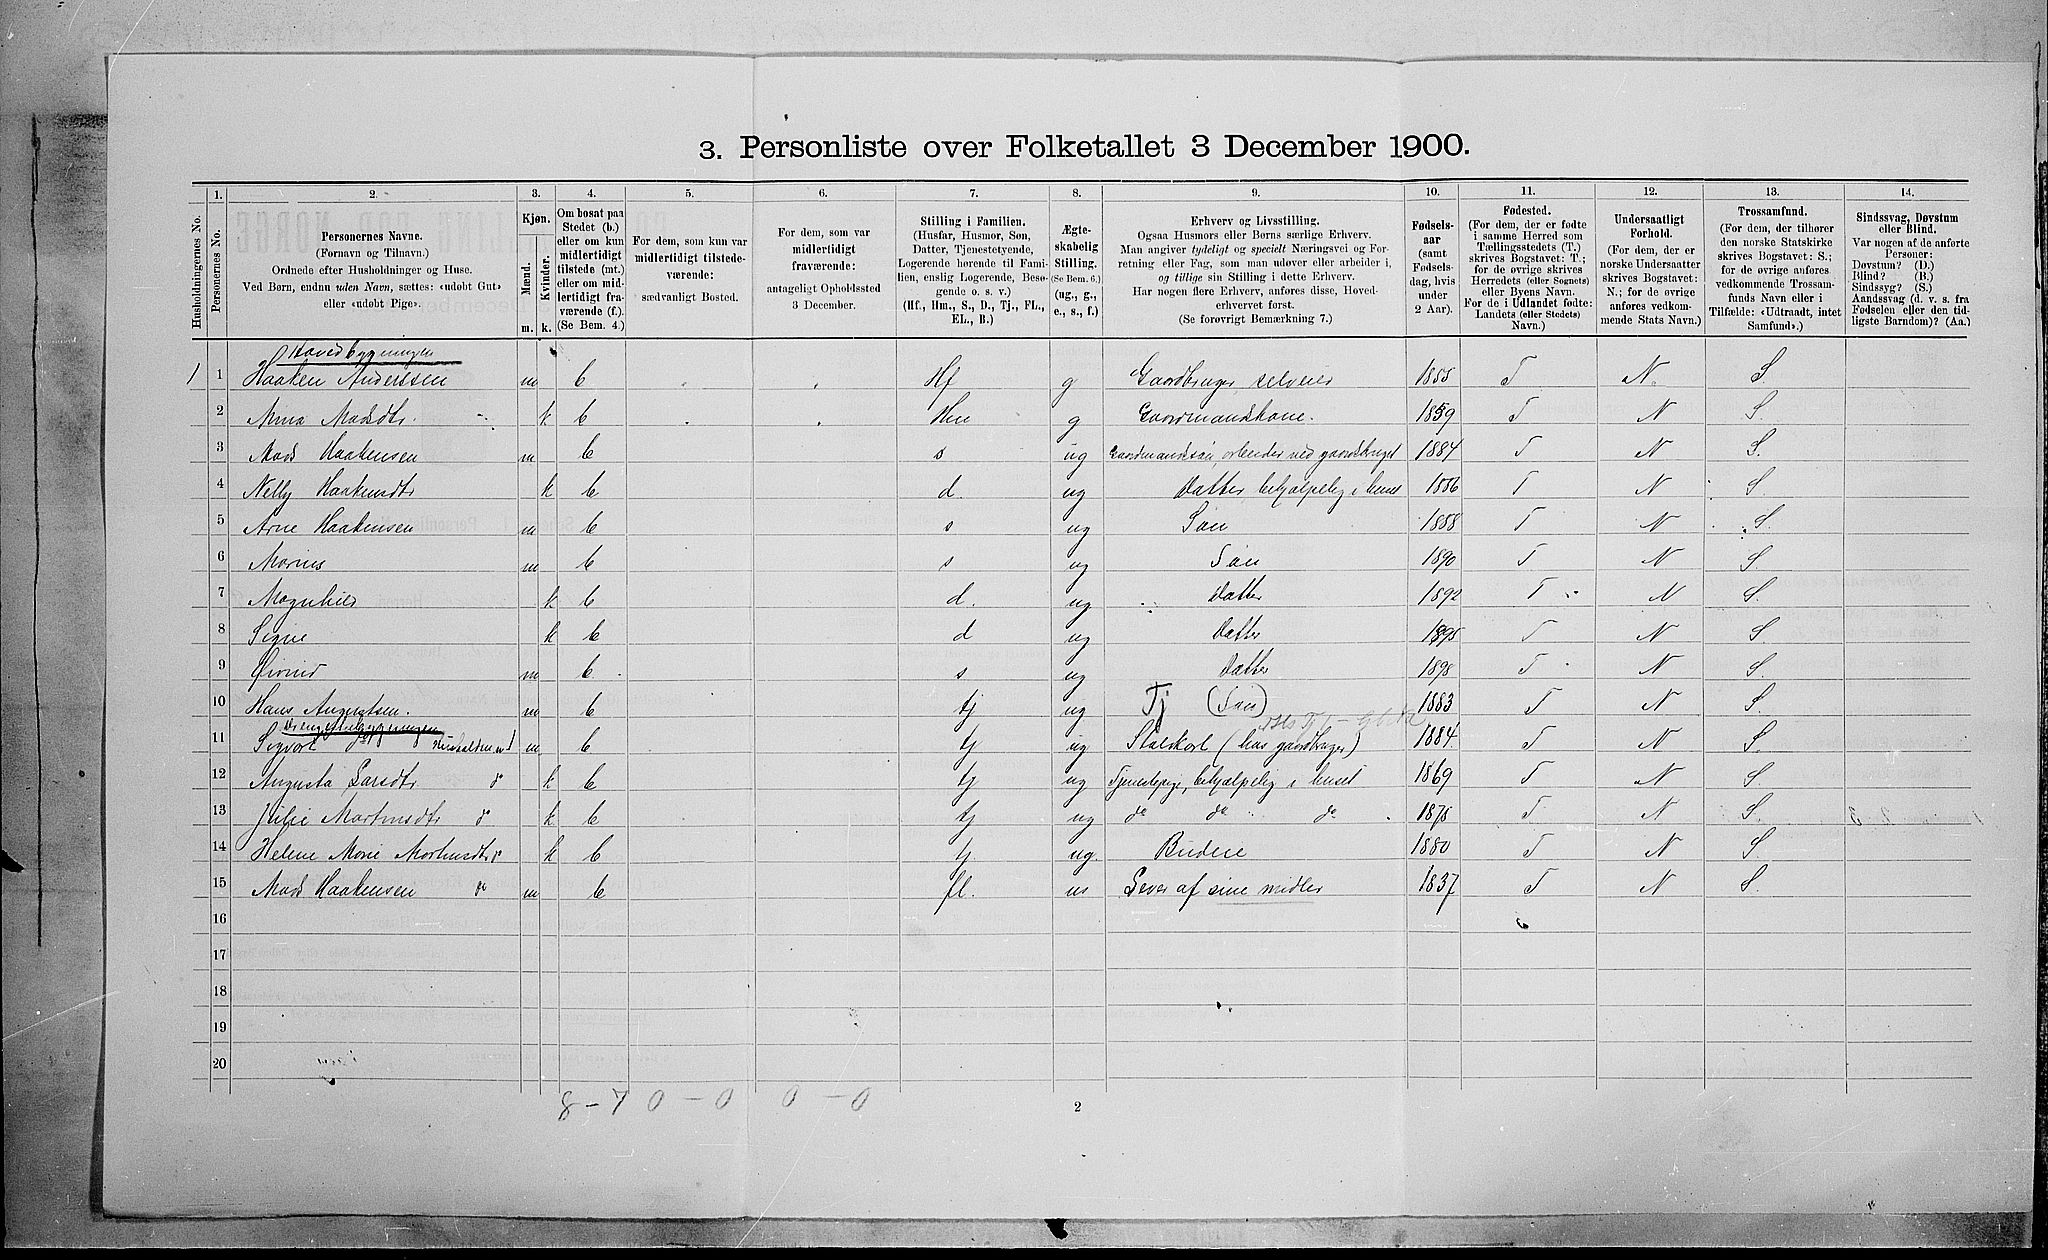 3. Personliste over Folketallet 3 December 1900.
1. 2. 3. 4. 5. 6. 7. 8. 9. 10. 11. 12. 13. 14.
Husholdningernes No.
Personernes No.
Personernes Navne.
(Fornavn og Tilnavn.)
Ordnede efter Husholdninger og Huse.
Ved Børn, endnu uden Navn, sættes: «udøbt Gut»
eller «udøbt Pige».
Kjøn.
Mænd. Kvinder.
m. k.
Om bosat paa
Stedet (b.)
eller om kun
midlertidigt
tilstede (mt.)
eller om mid-
lertidigt fra-
værende (f.).
(Se Bem. 4.)
For dem, som kun var
midlertidigt tilstede-
værende:
sædvanligt Bosted.
For dem, som var
midlertidigt
fraværende:
antageligt Opholdssted
3 December.
Stilling i Familien.
(Husfar, Husmor, Søn,
Datter, Tjenestetyende,
Logerende hørende til Fami-
lien, enslig Logerende, Besø-
gende o. s. v.)
(Hf., Hm., S., D., Tj., FL.,
EL., B.)
Ægte-
skabelig
Stilling.
(Se Bem. 6.)
(ug., g.,
e., s., f.)
Erhverv og Livsstilling.
Ogsaa Husmors eller Børns særlige Erhverv.
Man angiver tydeligt og specielt Næringsvei og For-
retning eller Fag, som man udøver eller arbeider i,
og tillige sin Stilling i dette Erhverv.
Har nogen flere Erhverv, anføres disse, Hoved-
erhvervet først.
(Se forøvrigt Bemærkning 7.)
Fødsels-
aar
(samt
Fødsels-
dag, hvis
under
2 Aar).
Fødested.
(For dem, der er fødte
i samme Herred som
Tællingsstedets (T.)
skrives Bogstavet: T.;
for de øvrige skrives
Herredets (eller Sognets)
eller Byens Navn.
For de i Udlandet fødte:
Landets (eller Stedets)
Navn.)
Undersaatligt
Forhold.
(For dem, der er
norske Undersaatter
skrives Bogstavet:
N.; for de øvrige
anføres vedkom-
mende Stats Navn.)
Trossamfund.
(For dem, der tilhører
den norske Statskirke
skrives Bogstavet: S.;
for de øvrige anføres
vedkommende Trossam-
funds Navn eller i
Tilfælde: «Udtraadt, intet
Samfund».)
Sindssvag, Døvstum
eller Blind.
Var nogen af de anførte
Personer:
Døvstum? (D.)
Blind? (B.)
Sindssyg? (S.)
Aandssvag (d. v. s. fra
Fødselen eller den tid-
ligste Barndom)? (Aa.)
Hovedbygningen
1 1 Haaken Anderssen m b Hf g Gaardbruger, selveier 1855 T N. S.
2 Anna Madsdtr. k b Hm g Gaardmandskone. 1859 T N S.
3 Mads Haakensen m b s ug Gaardmandssøn, arbeider ved gaardsbruget 1884 T N S.
4 Nelly Haakensdtr k b d. ug Datter behjælpelig i huset 1886 T N S
5 Arne Haakensen m b s ug Søn 1888 T N S.
6 Marius m b s ug Søn 1890 T N S.
7 Magnhild k b d. ug Datter 1892 T N S.
8 Signe k b d ug Datter 1895 T N S
9 Øivind m b s ug Datter 1898 T N S.
10 Hans Augustsen. m b tj ug Tj (Søn) 1883 T N S.
Drengestubygningen
11 Sigvart m b tj ug Staldkarl (hos gaardbruger) 1884 T N S.
12 Augusta Larsdtr do k b tj ug Tjenestepige, behjælpelig i huset 1869 T N S.
13 Julie Martinsdtr do k b tj ug do do do 1878 T N S.
14 Helene Marie Martinsdtr do k b tj ug. Budeie 1880 T N S
15 Mads Haakensen do m b fl. us Lever af sine midler 1837 T N S.
16
17
18
19
20
8 – 7 0 – 0 0 – 0
2